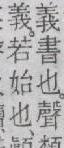 義書也。聲
義。若始也、